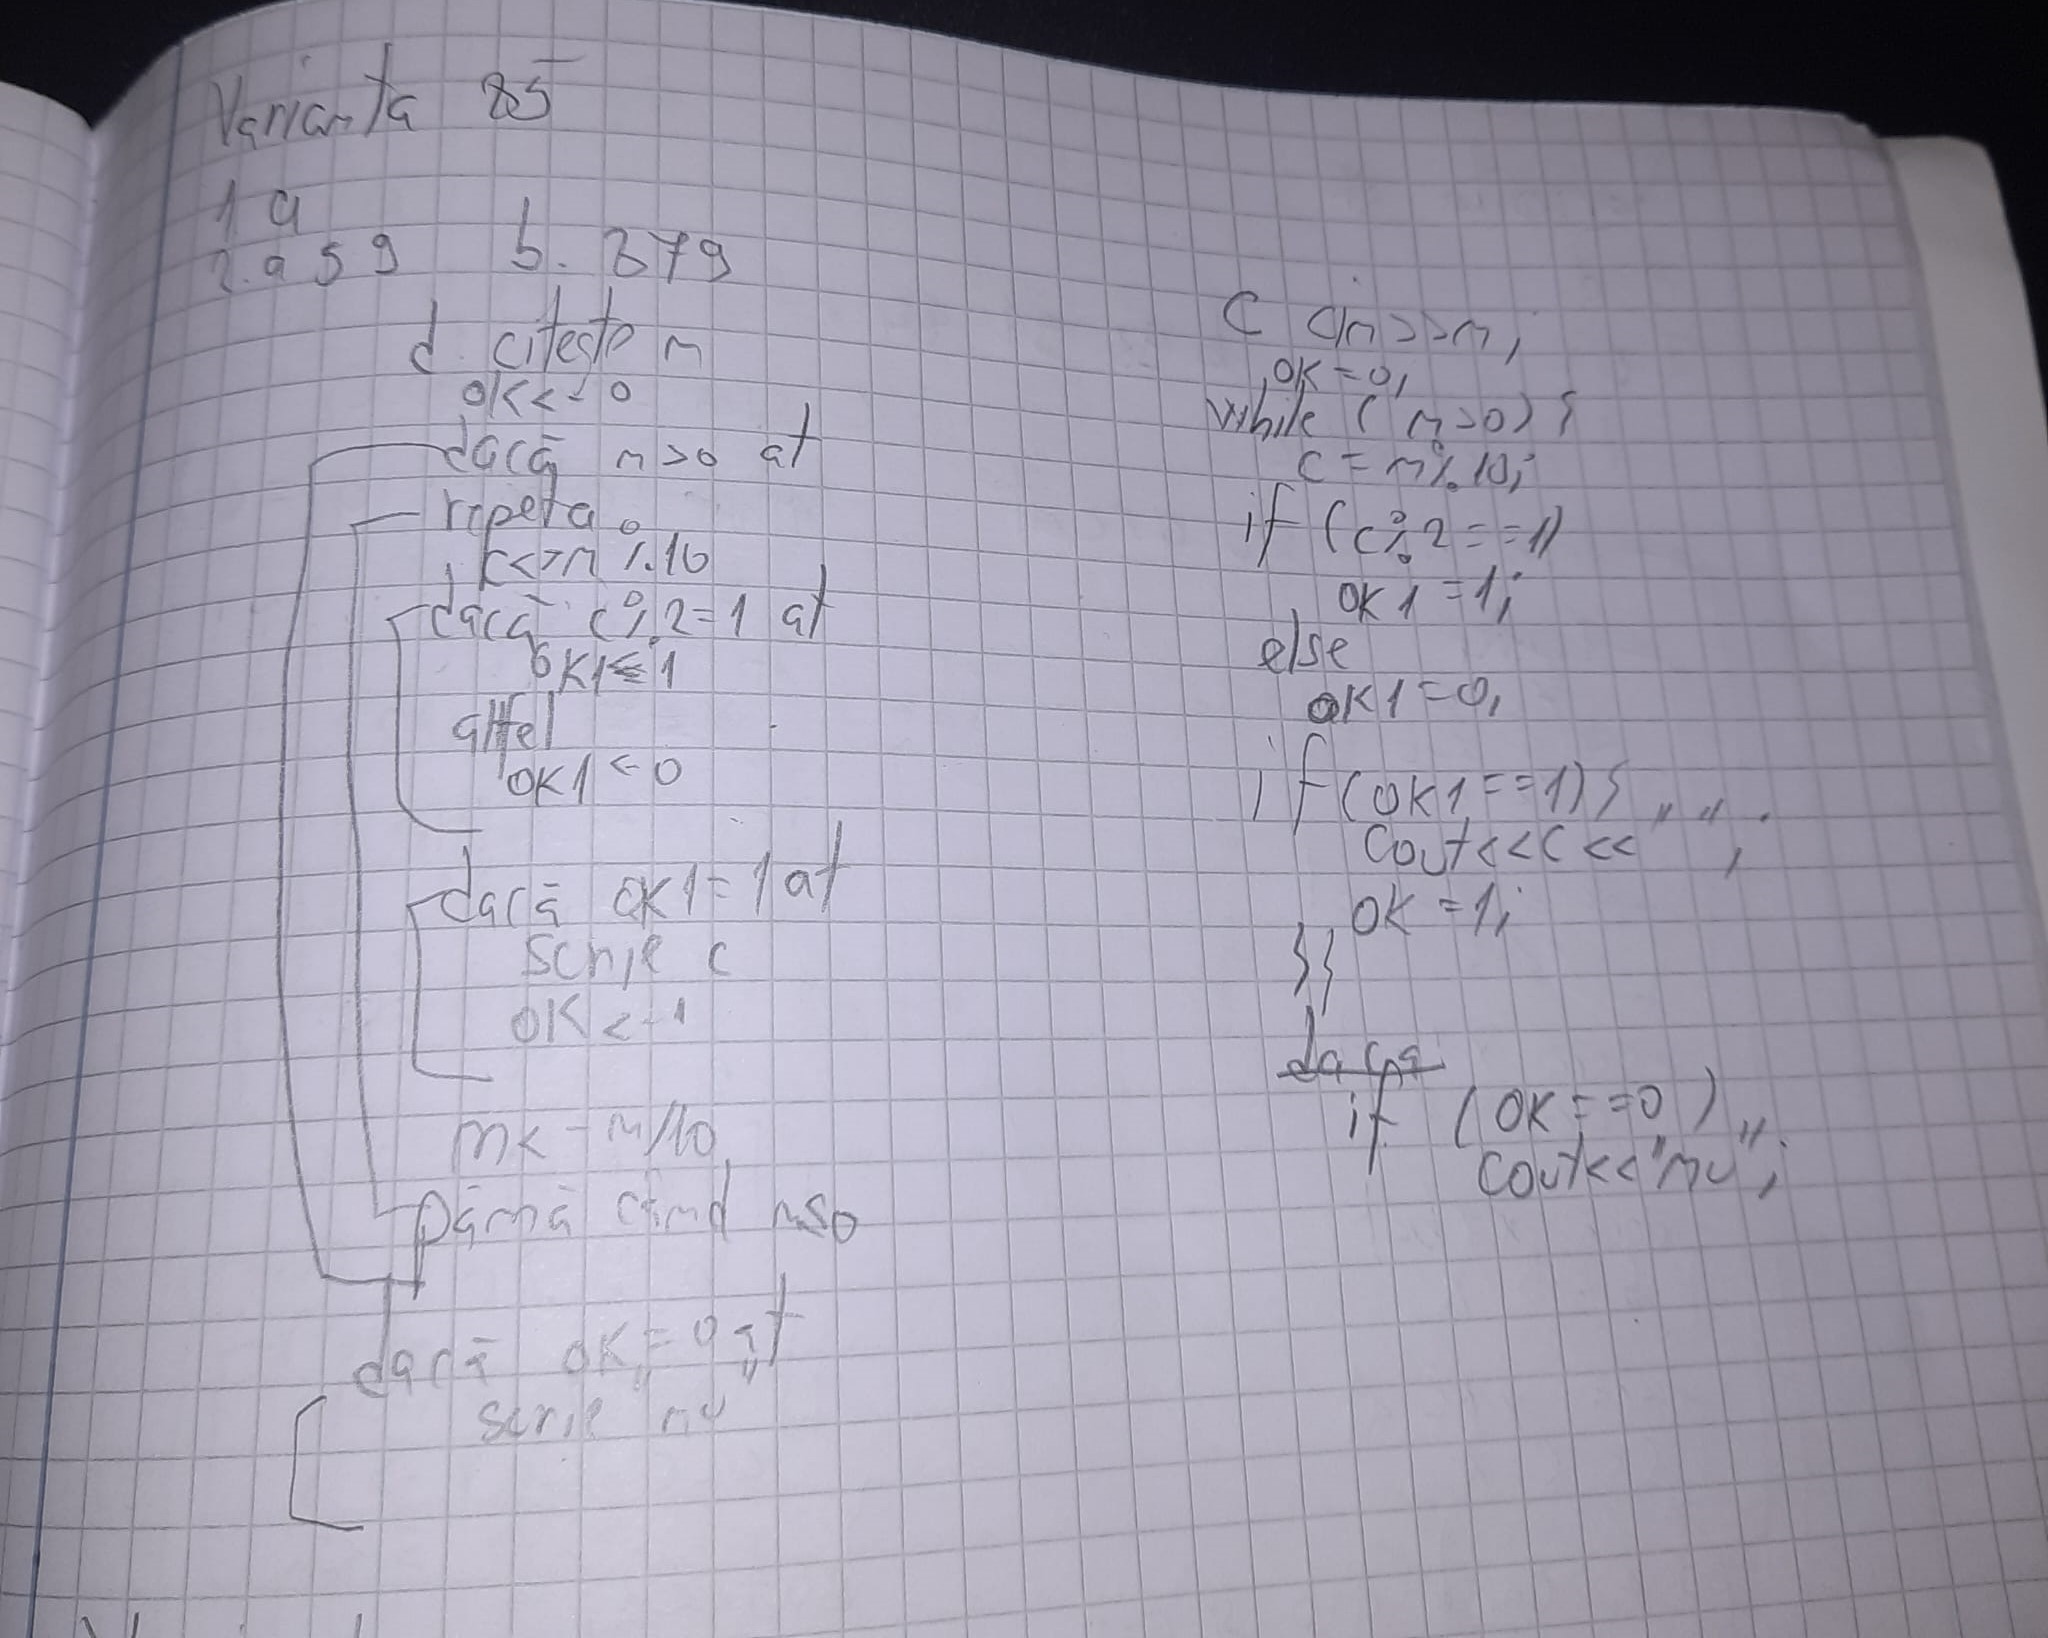 Varianta 85
1 a
2. a 5 9 b. 879
d. citește n
ok<-0
dacă n>0 at
repeta
c<-n%10
dacă c%2=1 at
ok1<-1
altfel
ok1<-0
dacă ok1=1 at
scrie c
ok<-1
n<-n/10
până când n≤0
dacă ok=0 at
scrie "nu"
C cin>>n;
ok=0;
while (n>0) {
c=n%10;
if (c%2==1)
ok1=1;
else
ok1=0;
if(ok1==1){
cout<<c<<" ";
ok=1;
}}
daca
if (ok==0)
cout<<"nu";